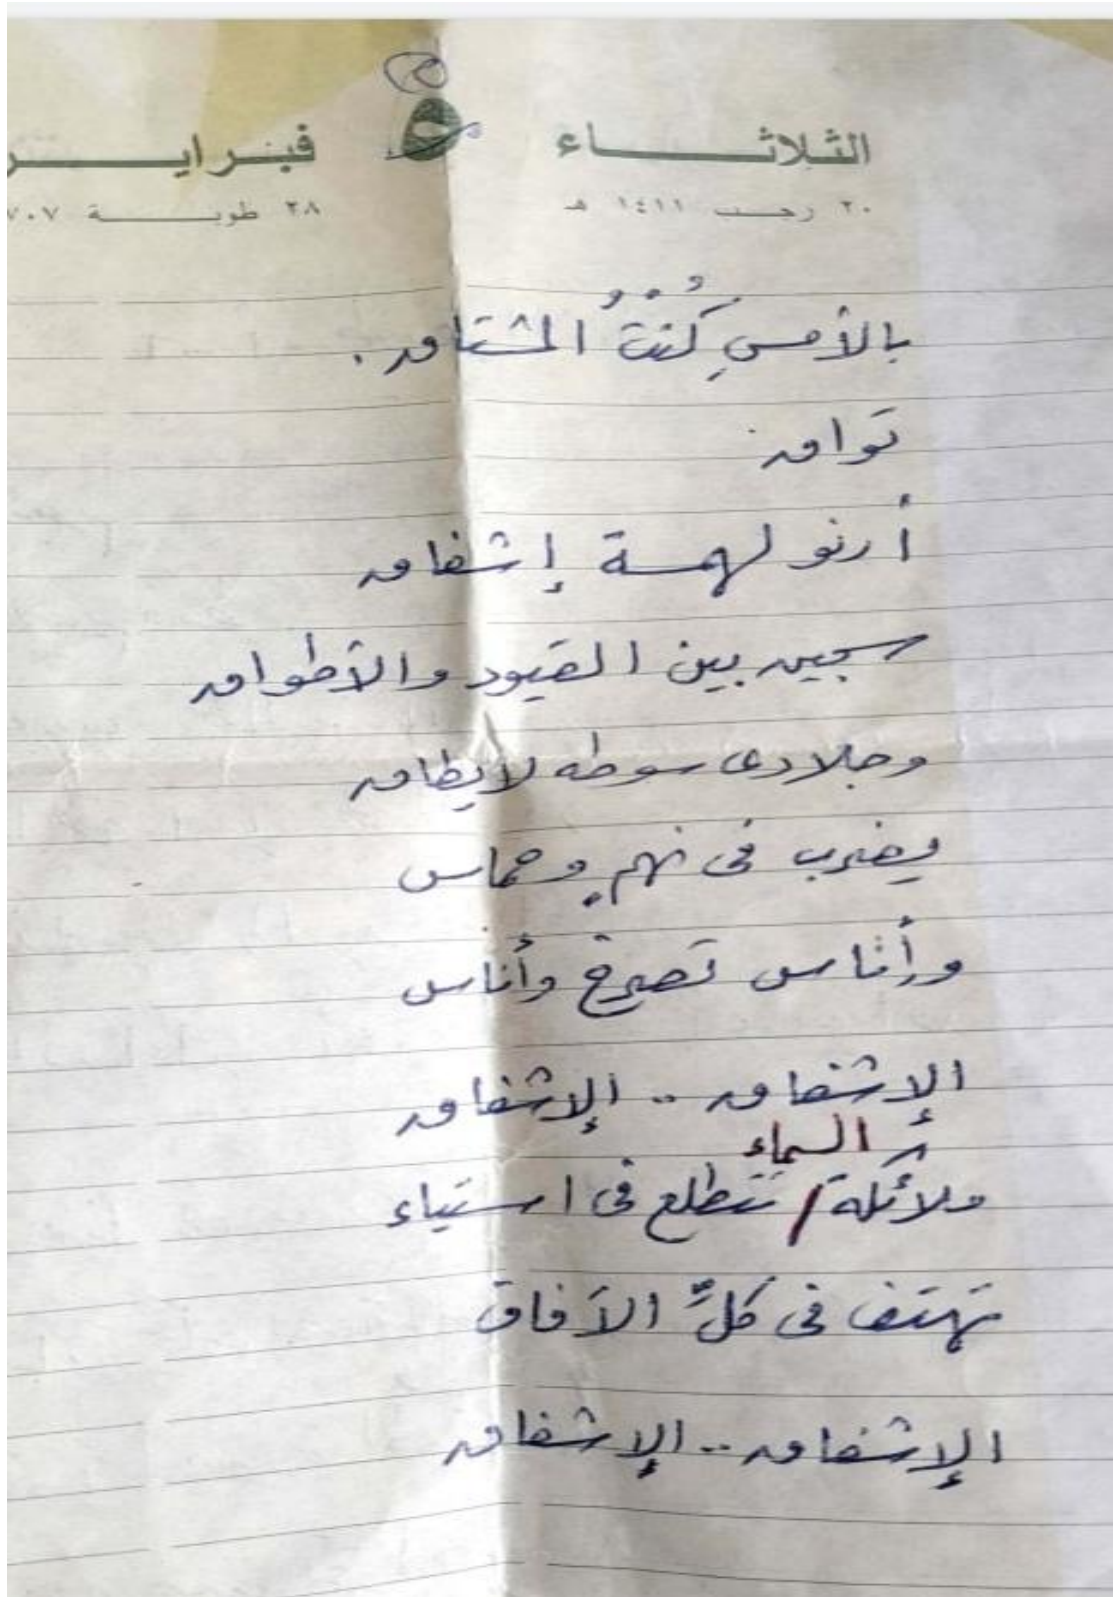 الثلاثاء ٥ فبراير
٢٠ رجب ١٤١١ هـ ٢٨ طوبة ٧٠٧
بالأمسِ كُنْتُ المشتاق.
تواق
أرنو لهمسة إشفاق
سجين بين القيود والأطواق
وجلادى سوطه لايطاق
يضرب فى نهمٍ وحماس
وأناس تصرخ وأناس
الإشفاق .. الإشفاق
السماء
ملائكة / تتطلع فى استياء
تهتف فى كلِّ الآفاق
الإشفاق .. الإشفاق